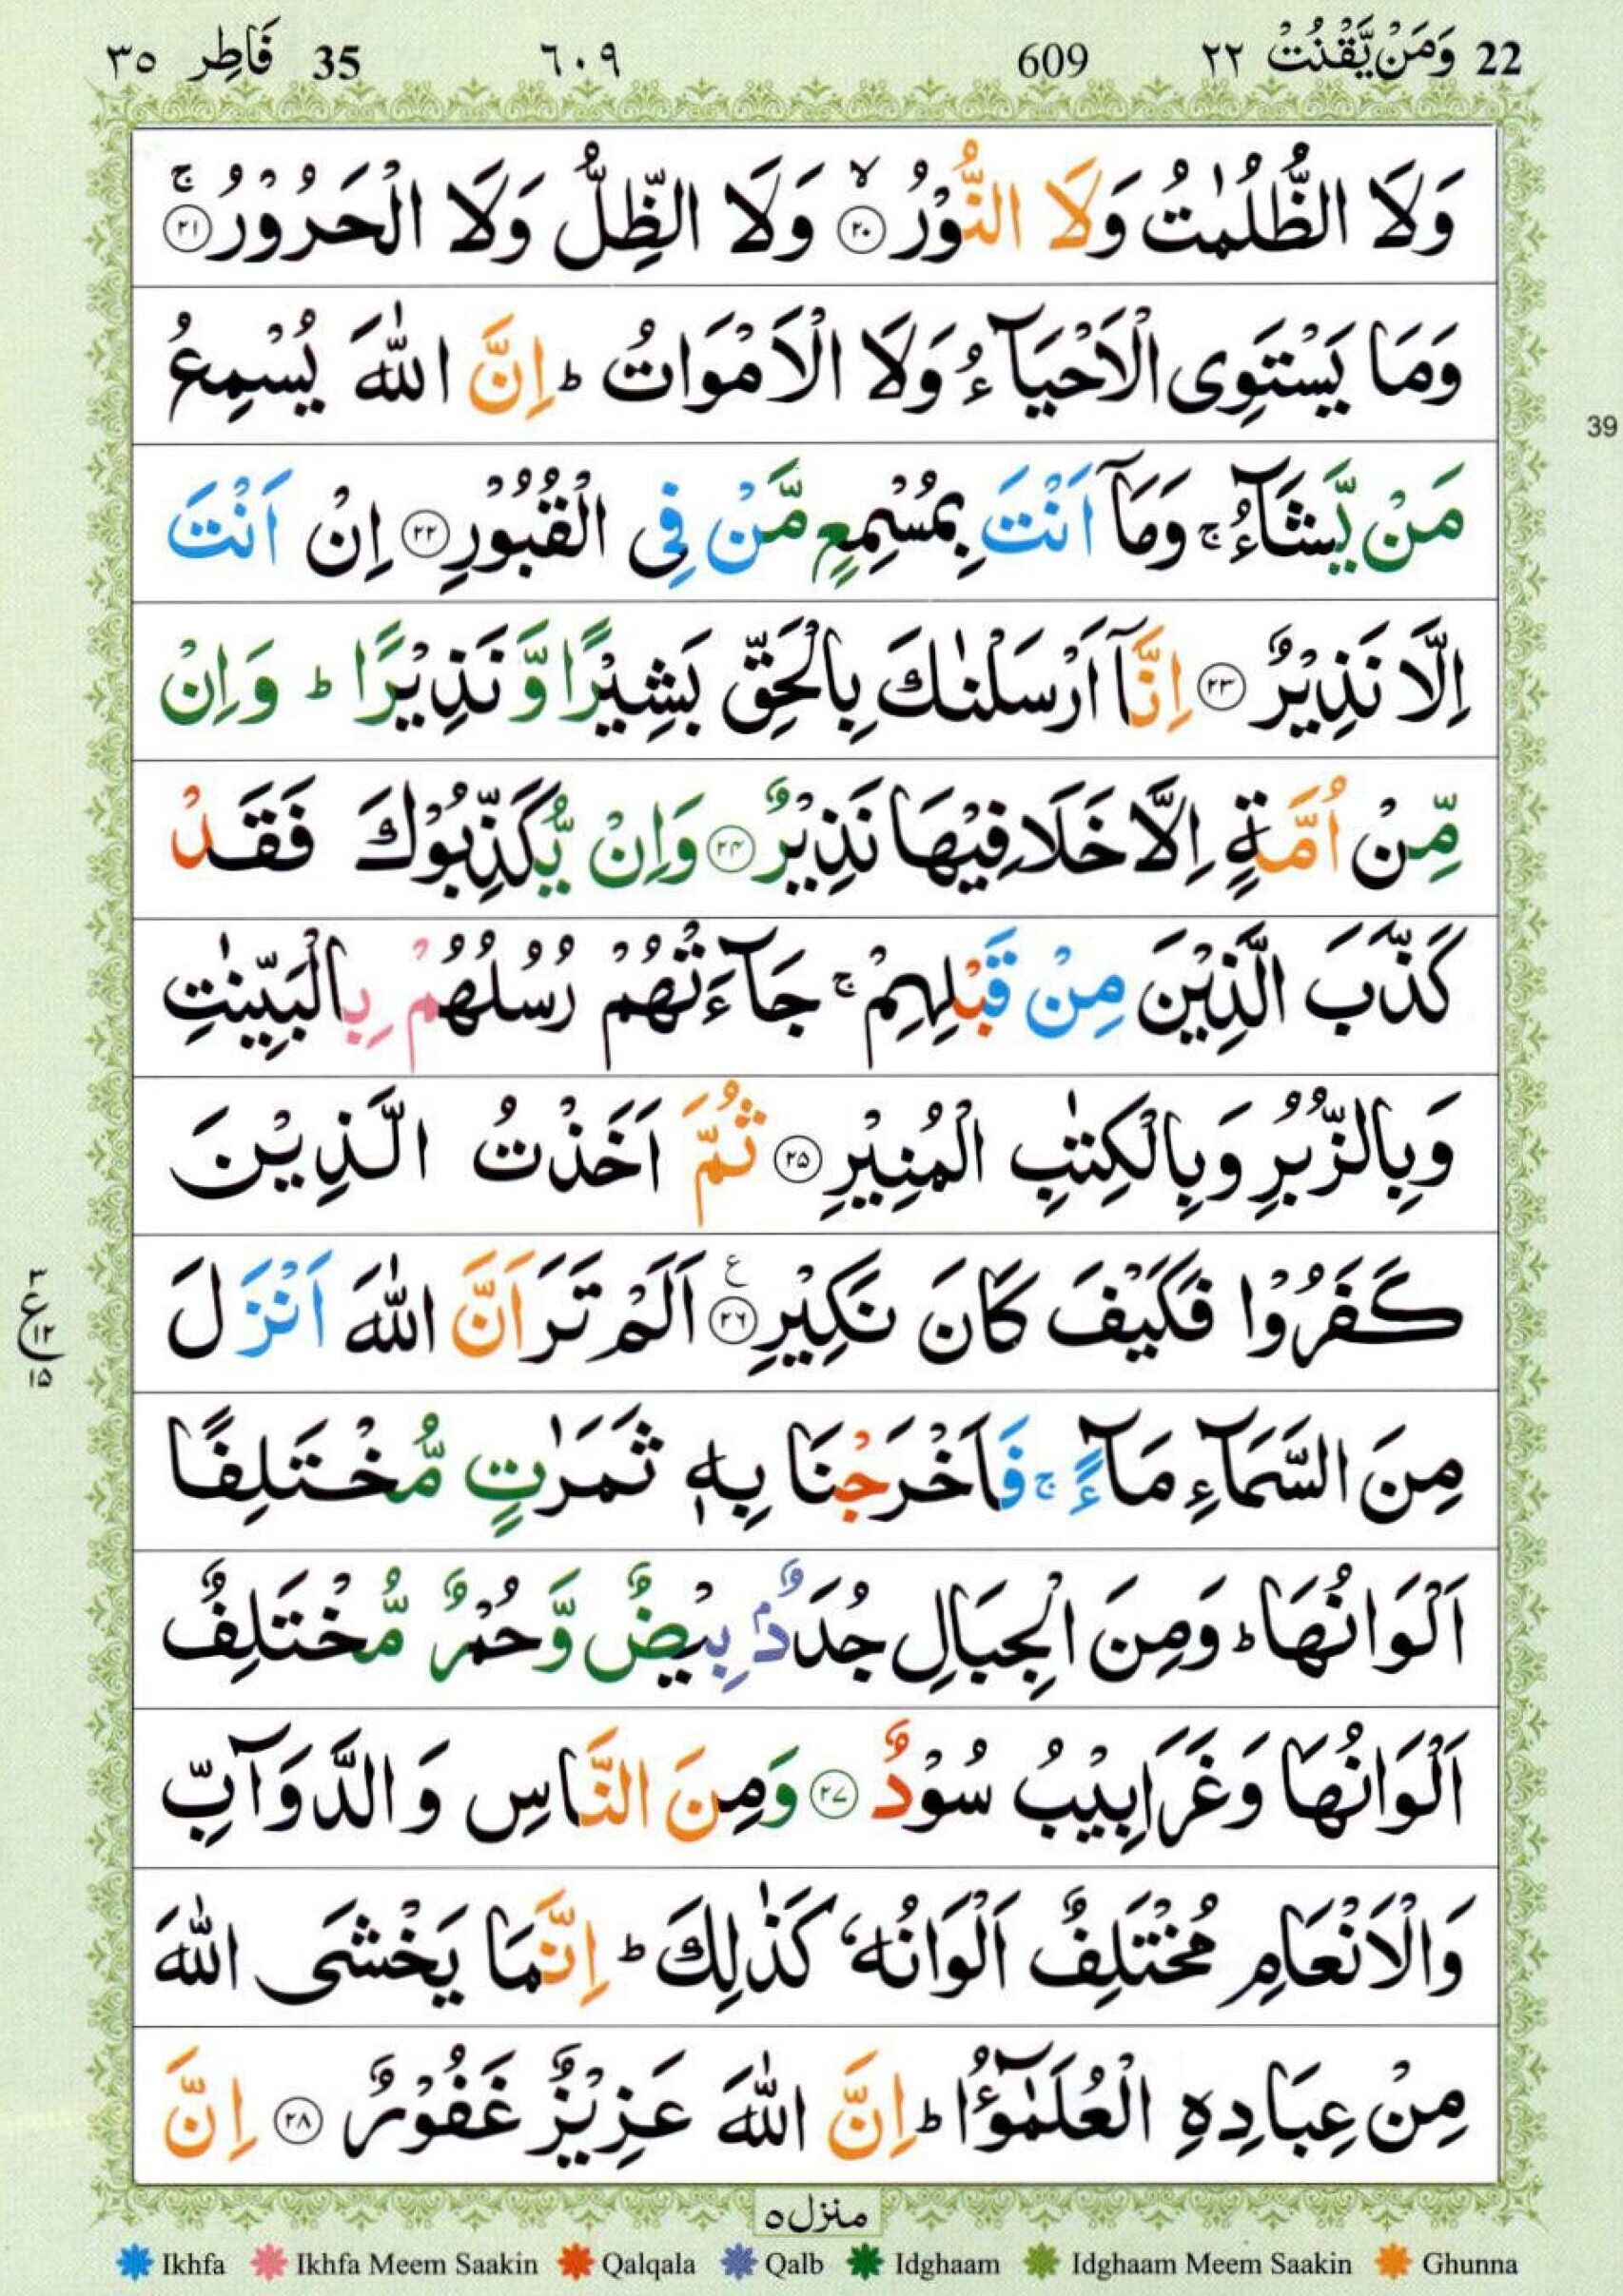 22 وَمَنْ يَّقْنُتْ ٢٢ 609 ٦٠٩ 35 فَاطِر ٣٥
وَلَا الظُّلُمٰتُ وَلَا النُّوْرُ ۙ‏﴿۲۰﴾ وَلَا الظِّلُّ وَلَا الْحَرُوْرُ ۚ‏﴿۲۱﴾
وَمَا يَسْتَوِى الْاَحْيَآءُ وَلَا الْاَمْوَاتُ ؕ اِنَّ اللّٰهَ يُسْمِعُ
مَنْ يَّشَآءُ ۚ وَمَاۤ اَنْتَ بِمُسْمِعٍ مَّنْ فِى الْقُبُوْرِ ﴿۲۲﴾ اِنْ اَنْتَ
اِلَّا نَذِيْرٌ ﴿۲۳﴾ اِنَّاۤ اَرْسَلْنٰكَ بِالْحَقِّ بَشِيْرًا وَّنَذِيْرًا ؕ وَاِنْ
مِّنْ اُمَّةٍ اِلَّا خَلَا فِيْهَا نَذِيْرٌ ﴿۲۴﴾ وَاِنْ يُّكَذِّبُوْكَ فَقَدْ
كَذَّبَ الَّذِيْنَ مِنْ قَبْلِهِمْ ۚ جَآءَتْهُمْ رُسُلُهُمْ بِالْبَيِّنٰتِ
وَبِالزُّبُرِ وَبِالْكِتٰبِ الْمُنِيْرِ ﴿۲۵﴾ ثُمَّ اَخَذْتُ الَّذِيْنَ
كَفَرُوْا فَكَيْفَ كَانَ نَكِيْرِ ﴿۲۶﴾ ع اَلَمْ تَرَ اَنَّ اللّٰهَ اَنْزَلَ
مِنَ السَّمَآءِ مَآءً ۚ فَاَخْرَجْنَا بِهٖ ثَمَرٰتٍ مُّخْتَلِفًا
اَلْوَانُهَا ؕ وَمِنَ الْجِبَالِ جُدَدٌۢ بِيْضٌ وَّحُمْرٌ مُّخْتَلِفٌ
اَلْوَانُهَا وَغَرَابِيْبُ سُوْدٌ ﴿۲۷﴾ وَمِنَ النَّاسِ وَالدَّوَآبِّ
وَالْاَنْعَامِ مُخْتَلِفٌ اَلْوَانُهٗ كَذٰلِكَ ؕ اِنَّمَا يَخْشَى اللّٰهَ
مِنْ عِبَادِهِ الْعُلَمٰٓؤُا ؕ اِنَّ اللّٰهَ عَزِيْزٌ غَفُوْرٌ ﴿۲۸﴾ اِنَّ
39
٣
ع
١٢
١٥
منزل ٥
Ikhfa Ikhfa Meem Saakin Qalqala Qalb Idghaam Idghaam Meem Saakin Ghunna